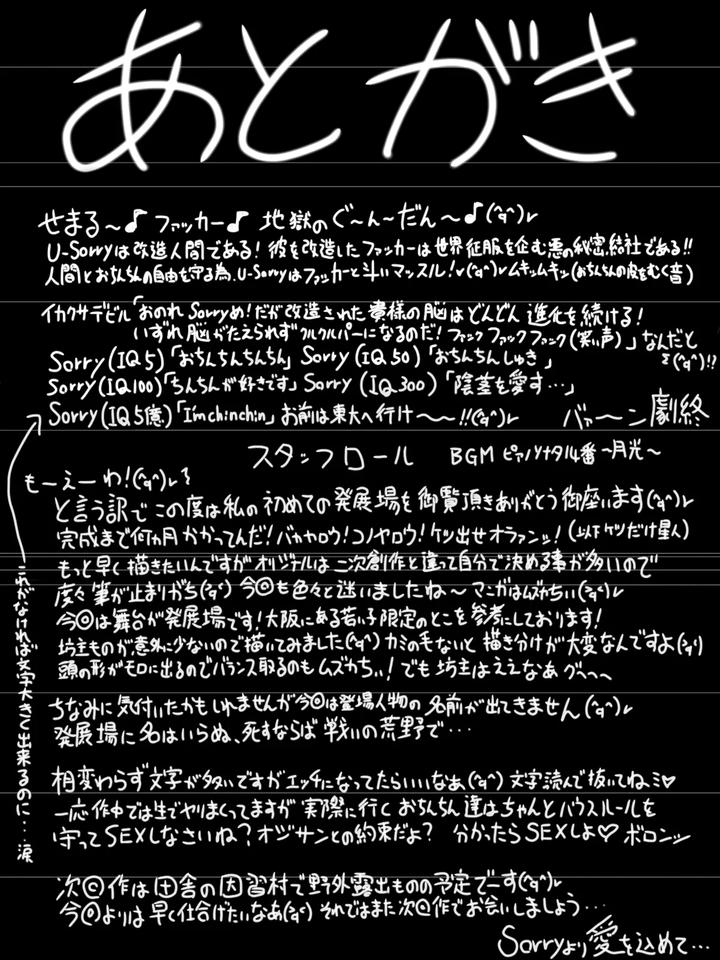 あとがき
せまる～♪ ファッカー♪ 地獄のぐ～ん～だん～♪(^q^)r
U-Sorryは改造人間である！彼を改造したファッカーは世界征服を企む悪の秘密結社である!!
人間とおちんちんの自由を守る為、U-Sorryはファッカーと斗いマッスル！r(^q^)rムキッムキン(おちんちんの皮をむく音)
イカクサデビル「おのれSorryめ！だが改造された貴様の脳はどんどん進化を続ける！
いずれ脳がたえられずクルクルパーになるのだ！ファックファックファック(笑い声)」なんだと
Σ(^q^)!!
Sorry(IQ5)「おちんちんちんちん」Sorry(IQ50)「おちんちんしゅき」
Sorry(IQ100)「ちんちんが好きです」Sorry(IQ300)「陰茎を愛す…」
Sorry(IQ5億)「I'm chinchin」お前は東大へ行け～～!!(^q^)r バァ～ン 劇終
スタッフロール BGM ピアノソナタ14番～月光～
もーえーわ！(^q^)r
と言う訳でこの度は私の初めての発展場を御覧頂きありがとう御座います(^q^)r
完成まで何ヵ月かかってんだ！バカヤロウ！コノヤロウ！ケツ出せオラァンッ！(以下ケツだけ星人)
もっと早く描きたいんですがオリジナルは二次創作と違って自分で決める事が多いので
度々筆が止まりがち(^q^) 今回も色々と迷いましたね～マンガはムズかちぃ(^q^)r
今回は舞台が発展場です！大阪にある若い子限定のとこを参考にしております！
坊主ものが意外に少ないので描いてみました(^q^)カミの毛ないと描き分けが大変なんですよ(^q^)
頭の形がモロに出るのでバランス取るのもムズかちぃ！でも坊主はええなあ グヘヘヘ
ちなみに気付いたかもしれませんが今回は登場人物の名前が出てきません(^q^)r
発展場に名はいらぬ、死すならば戦いの荒野で…
相変わらず文字が多いですがエッチになってたらいいなあ(^q^)文字読んで抜いてねミ♡
一応作中では生でヤりまくってますが実際に行くおちんちん達はちゃんとハウスルールを
守ってSEXしなさいね？オジサンとの約束だよ？ 分かったらSEXしよ♡ ボロンッ
次回作は田舎の因習村で野外露出ものの予定でーす(^q^)r
今回よりは早く仕合げたいなあ(^q^) それではまた次回作でお会いしましょう…
Sorryより愛を込めて…
これがなければ文字大きく出来るのに…涙